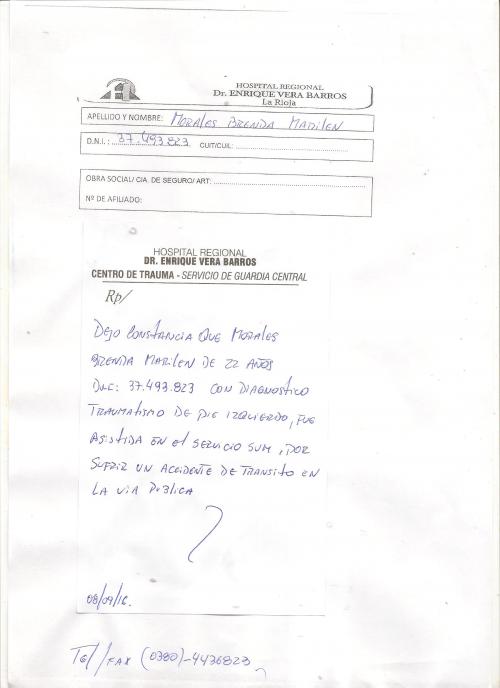 HOSPITAL REGIONAL
Dr. ENRIQUE VERA BARROS
La Rioja
APELLIDO Y NOMBRE: MORALES BRENDA MARILEN
D.N.I. : 37.493.823 CUIT/CUIL:
OBRA SOCIAL/ CIA. DE SEGURO/ ART:
Nº DE AFILIADO:
HOSPITAL REGIONAL
DR. ENRIQUE VERA BARROS
CENTRO DE TRAUMA - SERVICIO DE GUARDIA CENTRAL
Rp/
DEJO CONSTANCIA QUE MORALES
BRENDA MARILEN DE 22 AÑOS
DNI: 37.493.823 CON DIAGNOSTICO
TRAUMATISMO DE PIE IZQUIERDO, FUE
ASISTIDA EN el SERVICIO SUM, POR
SUFRIR UN ACCIDENTE DE TRANSITO EN
LA VIA PUBLICA
08/09/16.
Tel/FAX (0380)-4436823